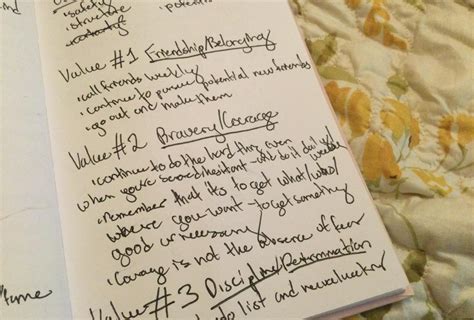 • safety
• structure
Value #1 Friendship/Belonging
• call friends weekly
• continue to pursue potential new friends
• go out and make them
Value #2 Bravery/Courage
• continue to do the hard thing even
when you're scared/hesitant - still do it daily/
weekly
• remember that its to get what/who/
where you want - to get something
good or necessary
• Courage is not the absence of fear
Value #3 Discipline/Determination
do list and
time